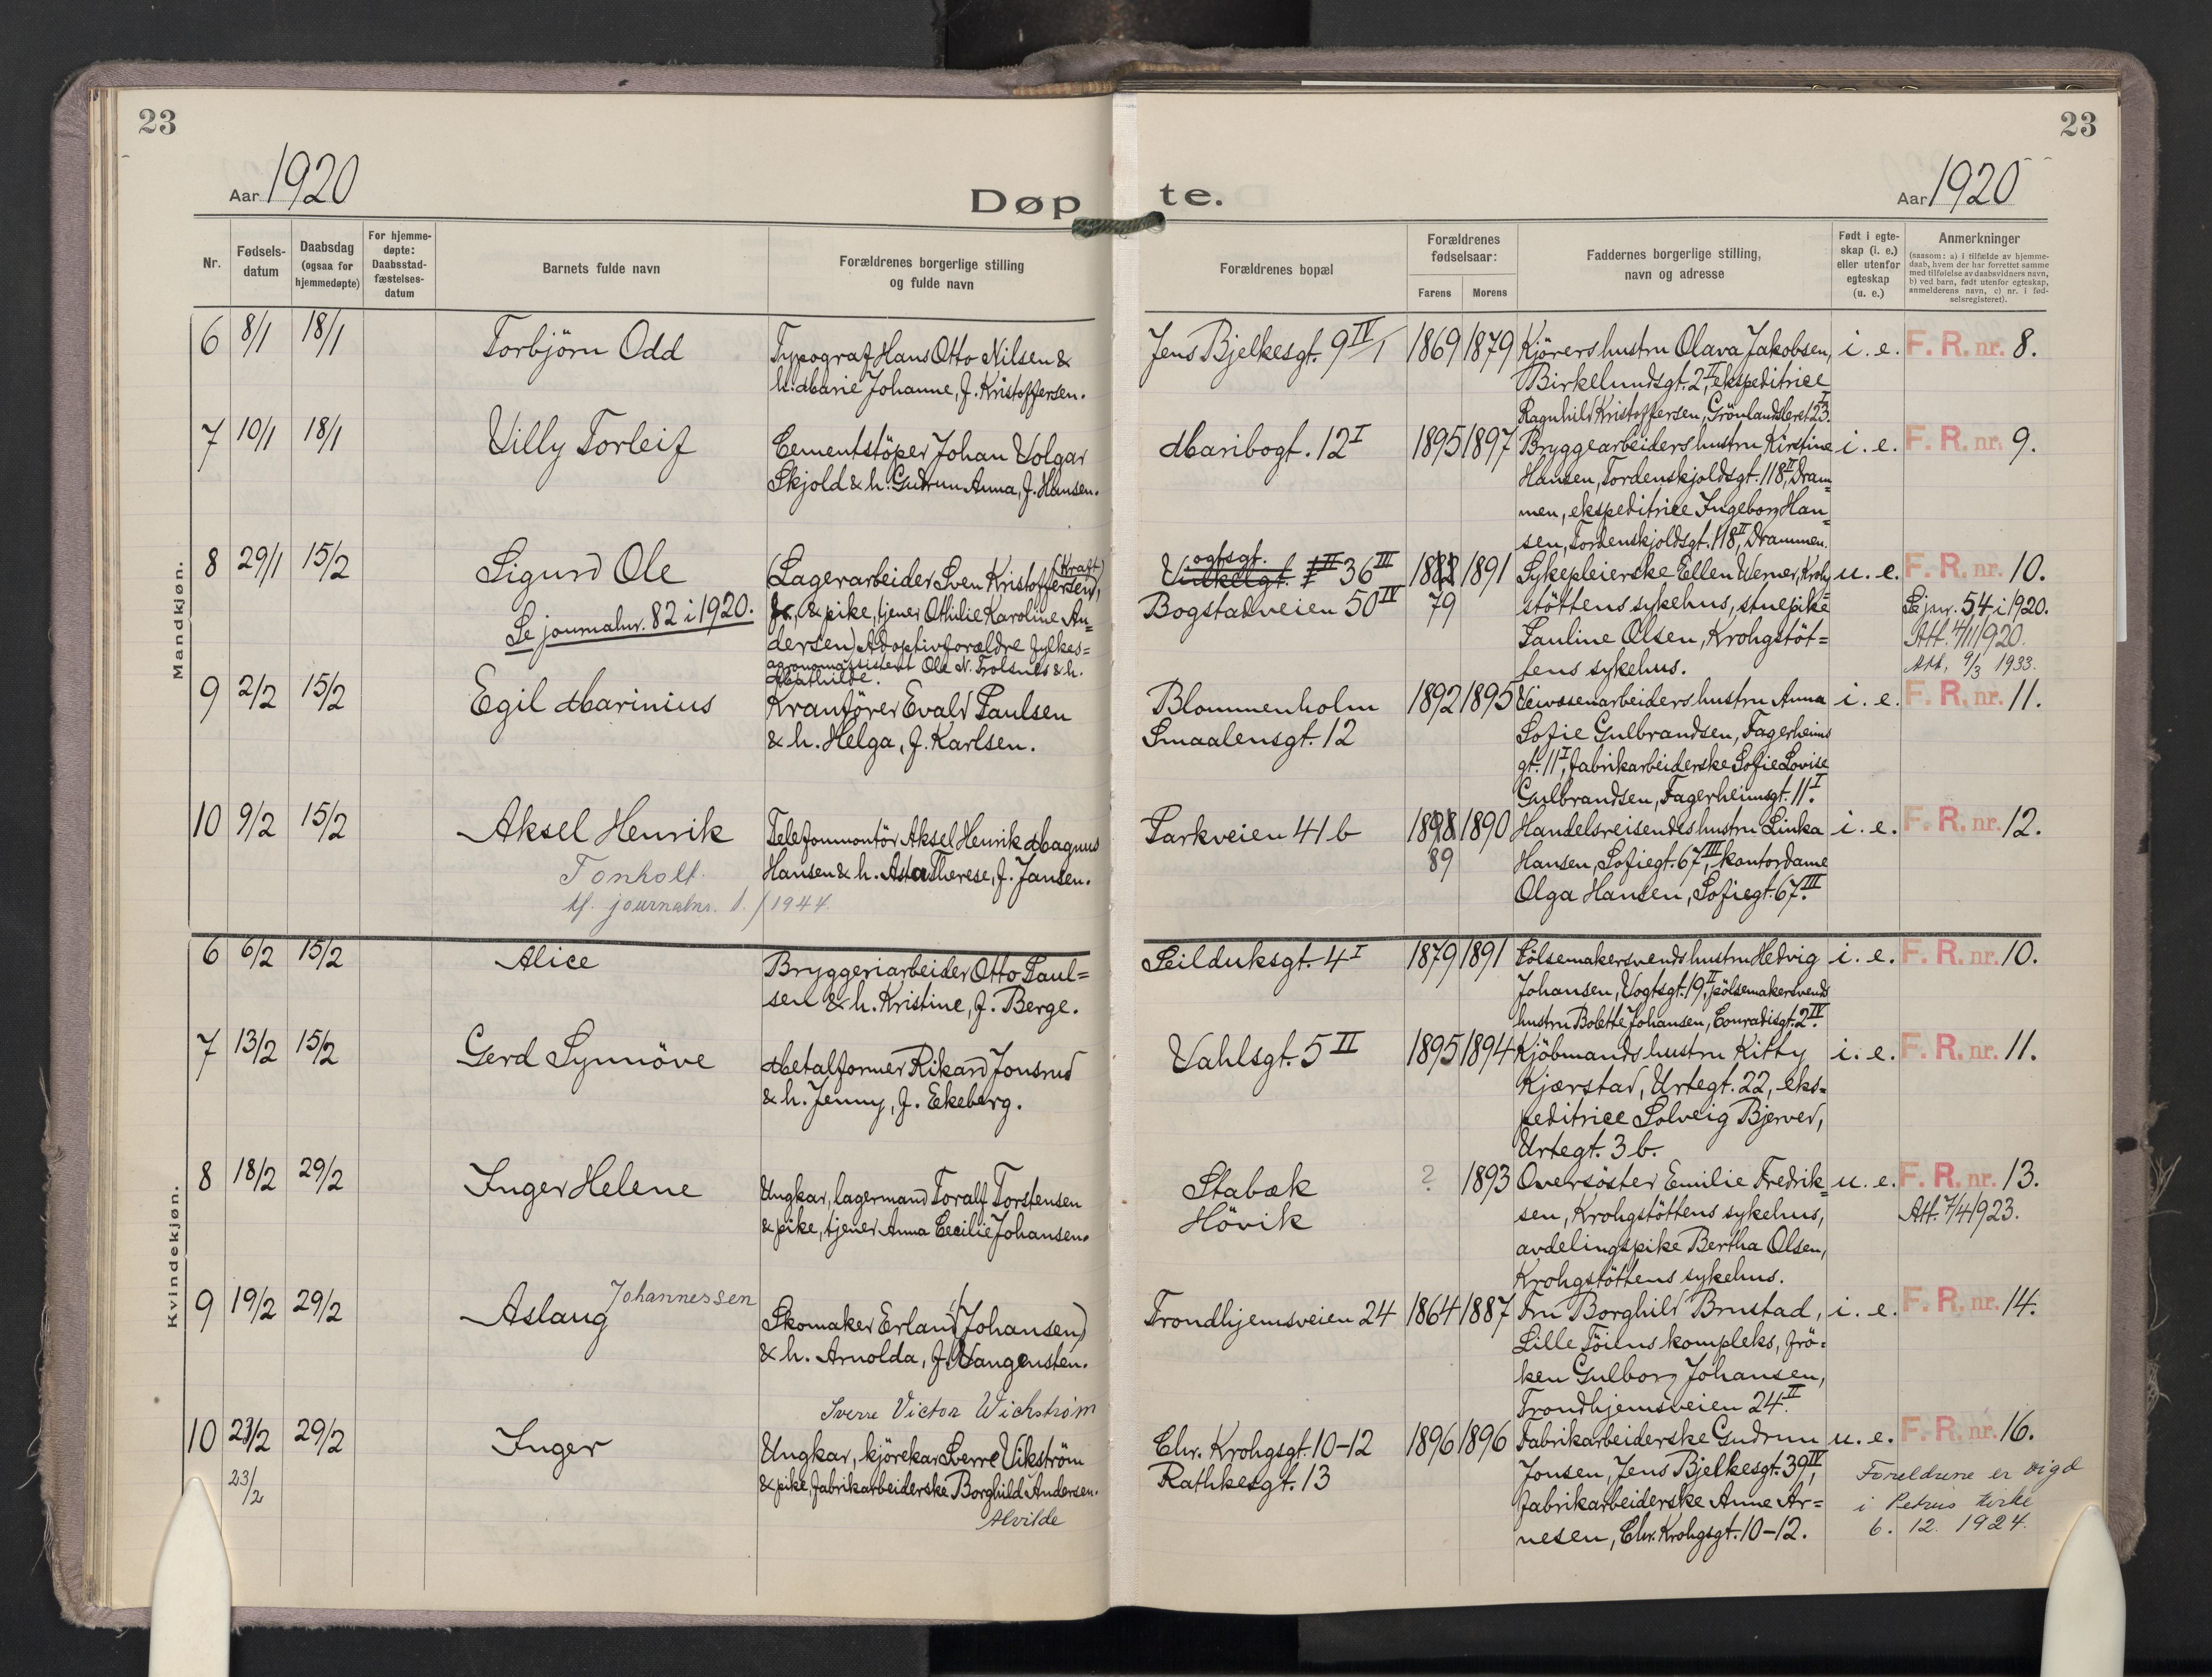 23
23
Aar 1920
Døpte.
Aar 1920
Nr.
Fødsels-
datum
Daabsdag
(ogsaa for
hjemmedøpte)
For hjemme-
døpte:
Daabsstad-
fæstelses-
datum
Barnets fulde navn
Forældrenes borgerlige stilling
og fulde navn
Forældrenes bopæl
Forældrenes
fødselsaar:
Farens Morens
Faddernes borgerlige stilling,
navn og adresse
Født i egte-
skap (i. e.)
eller utenfor
egteskap
(u. e.)
Anmerkninger
(saasom: a) i tilfælde av hjemme-
daab, hvem der har forrettet samme
med tilføielse av daabsvidners navn,
b) ved barn, født utenfor egteskap,
anmelderens navn, c) nr. i fød-
selsregisteret).
Mandkjøn.
6 8/1 18/1 Torbjörn Odd
Typograf Hans Otto Nilsen &
h. Marie Johanne, f. Kristoffersen.
Jens Bjelkesgt. 9 IV/1 1869 1879
Kjörers hustru Olava Jakobsen,
Birkelundsgt. 2 II, ekspeditrice
Ragnhild Kristoffersen, Grönlandsleret 23 I.
i. e. F. R. nr. 8.
7 10/1 18/1 Villy Torleif
Cementstöper Johan Volgar
Skjold & h. Gudrun Anna, f. Hansen.
Maribogt. 12 I 1895 1897
Bryggearbeiders hustru Kirstine
Hansen, Tordenskjoldsgt. 118 II, Dram=
men, ekspeditrice Ingeborg Han=
sen, Tordenskjoldsgt. 118 II, Drammen.
i. e. F. R. nr. 9.
8 29/1 15/2 Sigurd Ole
Se journalnr. 82 i 1920.
(Kraft)
(Lagerarbeider Sven Kristoffersen),
& pike, tjener Othilie Karoline An=
dersen) Adoptivforældre fylkes=
agronomassistent Ole N. Trolsnes & h.
Mathilde.
Vogtsgt. 36 III
Bogstadveien 50 IV
1882 1891
79
Sykepleierske Ellen Werner, Kroh=
stöttens sykehus, stuepike
Pauline Olsen, Krohgstöt=
tens sykehus.
u. e. F. R. nr. 10.
Se jnr. 54 i 1920.
Att. 4/11 1920.
Att. 9/3 1933.
9 2/2 15/2 Egil Marinius
Kranförer Evald Paulsen
& h. Helga, f. Karlsen.
Blommenholm
Smaalensgt. 12
1892 1895
Veivæsenarbeiders hustru Anna
Sofie Gulbrandsen, Fagerheims
gt. 11 I, fabrikarbeiderske Sofie Lovise
Gulbrandsen, Fagerheimsgt. 11 I.
i. e. F. R. nr. 11.
10 9/2 15/2 Aksel Henrik
Tonholt
Telefonmontör Aksel Henrik Magnus
Hansen & h. Asta Therese, f. Jansen.
journalnr. 1944.
Parkveien 41 b 1898 1890
89
Handelsreisendes hustru Linka
Hansen, Sofiegt. 67 III, kontordame
Olga Hansen, Sofiegt. 67 III.
i. e. F. R. nr. 12.
Kvindekjøn.
6 6/2 15/2 Alice
Bryggeriarbeider Otto Paul=
sen & h. Kristine, f. Berge.
Seilduksgt. 4 I 1879 1891
Pölsemakersvends hustru Hedvig
Johansen, Vogtsgt. 19 II, pölsemakersvends
hustru Bolette Johansen, Conradisgt. 2 IV.
i. e. F. R. nr. 10.
7 13/2 15/2 Gerd Synnöve
Metalformer Rikard Jonsrud
& h. Jenny, f. Ekeberg.
Vahlsgt. 5 II 1895 1894
Kjöbmands hustru Kitty
Kjærstad, Urtegt. 22, eks=
peditrice Solveig Bjerved,
Urtegt. 3 b.
i. e. F. R. nr. 11.
8 18/2 29/2 Inger Helene
Ungkar, lagermand Toralf Torstensen
& pike, tjener Anna Cecilie Johansen.
Stabæk
Hövik
? 1893
Oversöster Emilie Fredrik=
sen, Krohgstöttens sykehus,
avdelingspike Bertha Olsen,
Krohgstöttens sykehus.
u. e. F. R. nr. 13.
Att. 7/4 1923.
9 19/2 29/2 Aslaug Johannessen
Skomaker Erland (Johansen)
& h. Arnolda, f. Vangensten.
Trondhjemsveien 24 1864 1887
Fru Borghild Brustad,
Lille Töiens kompleks, frö=
ken Gulborg Johansen,
Trondhjemsveien 24 II.
i. e. F. R. nr. 14.
10 23/2 29/2 Inger
23/2
Sverre Victor Wichström
Ungkar, kjörekar Sverre Vikström
& pike, fabrikarbeiderske Borghild Andersen.
Alvilde
Chr. Krohgsgt. 10-12
Rathkesgt. 13
1896 1896
Fabrikarbeiderske Gudrun
Jonsen, Jens Bjelkesgt. 39 IV,
fabrikarbeiderske Anne Ar=
nesen, Chr. Krohgsgt. 10-12.
u. e. F. R. nr. 16.
Foreldrene er vigd
i Petrus kirke
6. 12. 1924.